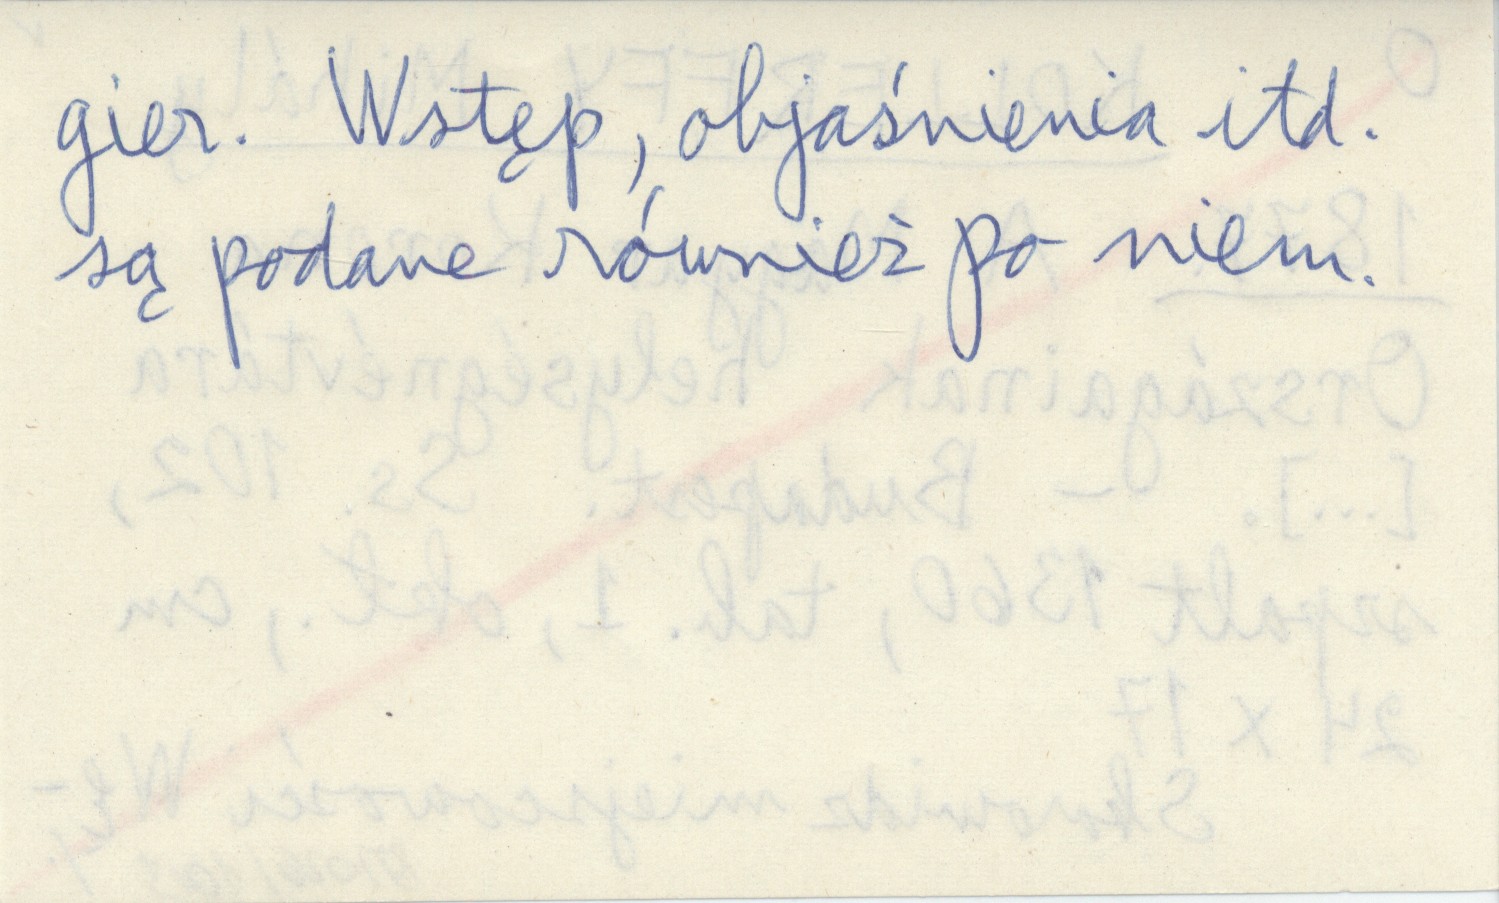 gier. Wstęp, objaśnienia itd.
są podane również po niem.